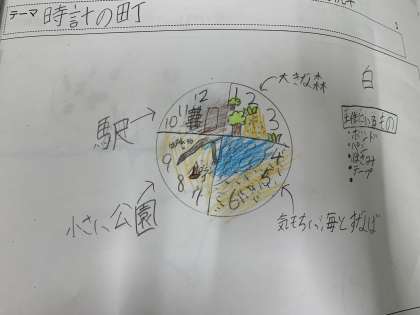 テーマ 時計の町
大きな森
白
駅
12
1
2
3
4
5
6
7
8
9
10
11
主に使うもの
・ボンド
・ペン
・はさみ
・テープ
小さい公園
気もちいい海とすなば